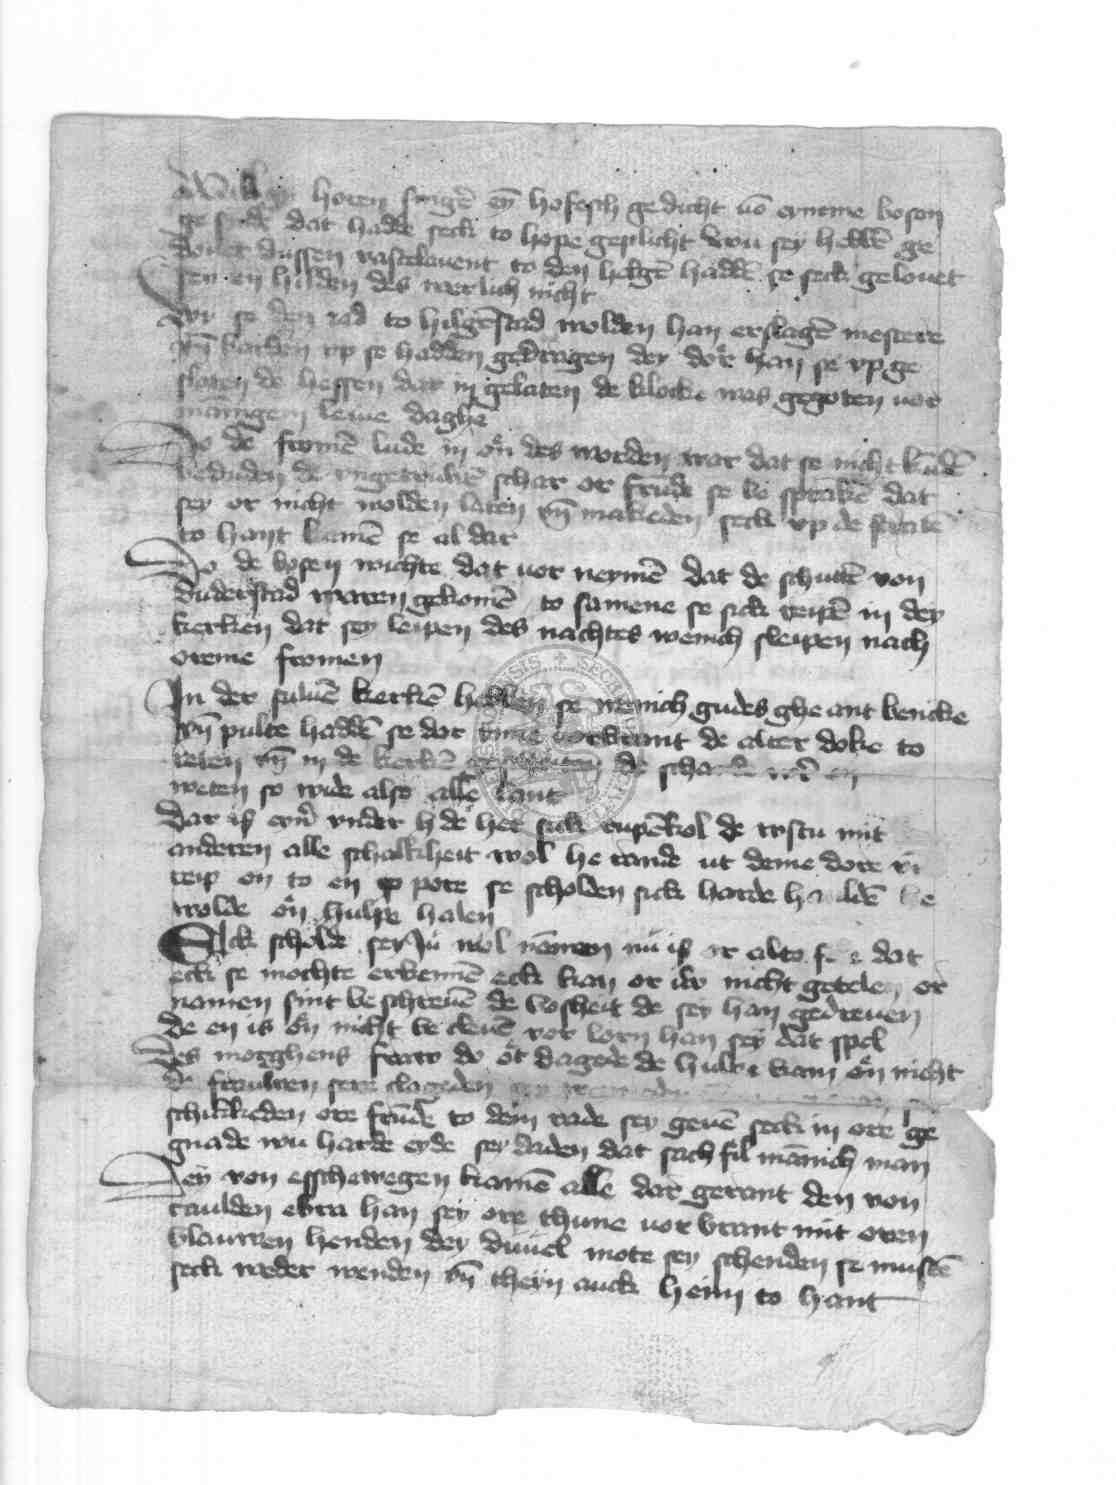 horen singē eȳ hofesch gedicht uō eyneme bosen
ge sinde dat hadde seck to hope geplicht wu sey hebbē ge
douer dussen vastelauent to den helgē haddē se seck gelouet
sey en hilden des werlich nicht
wy se den rad to hilgēstad wolden han erslagē mestere
vn̄ karden vp se hadden gedragen dey dor han se vp ge
sloten de hessen dar in gelaten de klocke was gegoten vor
mānigem leuue daghe
Do de fromē lude in on des worden war dat se nicht kūdē
beduden de vngetruwē schar or frūde se be sprakē dat
sey or nicht wolden laten vn̄ makeden seck vp de stratē
to hant kamē se al dar
Do de bosen wichte dat vor neymē dat de schuttē von
duderstad waren gekomē to samene se sick reipē in dey
kerken dat sey leipen des nachtes wenich sleipen nach
oreme fromen
In der suluē kerkē hebben se wenich gudes ghe ant bencke
vn̄ pulte haddē se dar inne vorbrant de alter doke to
reten vn̄ in de kerkē de schande en
weten so wide also alle lant
Dar is eyn̄ vnder h de het sick rupēkol de wstu mit
anderen alle schalkheit wol he rande ut deme dore
reip on to en pore se scholden sick harde haldē he
wolde on hulpe halen
Eck scholde sey Ju wol nomen nū is or alto dat
eck se mochte erkennē eck kan or iw nicht getelen or
namen sint be schreuē de bosheit de sey han gedreuen
de en is on nicht be cleuē vor lorn han sey dat spel
Des morghens frow do ot dagede de hulpe kam on nicht
de frauwen sere clageden
schickeden ore frūde to dem rade sey geuē seck in ore ge
gnade wu harde eyde sey daden dat sach fil mānich man
Dey von esschewegen kamē alle dar gerant den von
taulden ebra han sey ore thune vor brant mit oren
blauwen henden dey duuel mote sey schenden se mustē
seck weder wenden vn̄ theyn auck heim to hant